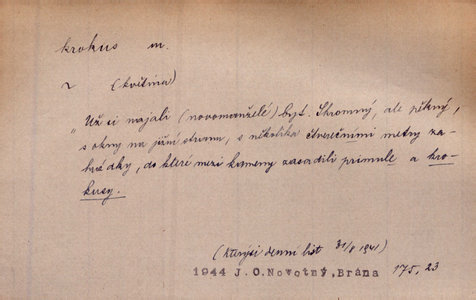 krokus m.
(květina)
"Už si najali (novomanželé) byt. Skromný, ale pěkný,
s okny na jižní stranu, s několika čtverečními metry za-
hrádky, do které mezi kameny zasadili primule a kro-
kusy.
(kterýsi denní list 31/8 1941)
1944 J.O.Novotný,Brána 175,23